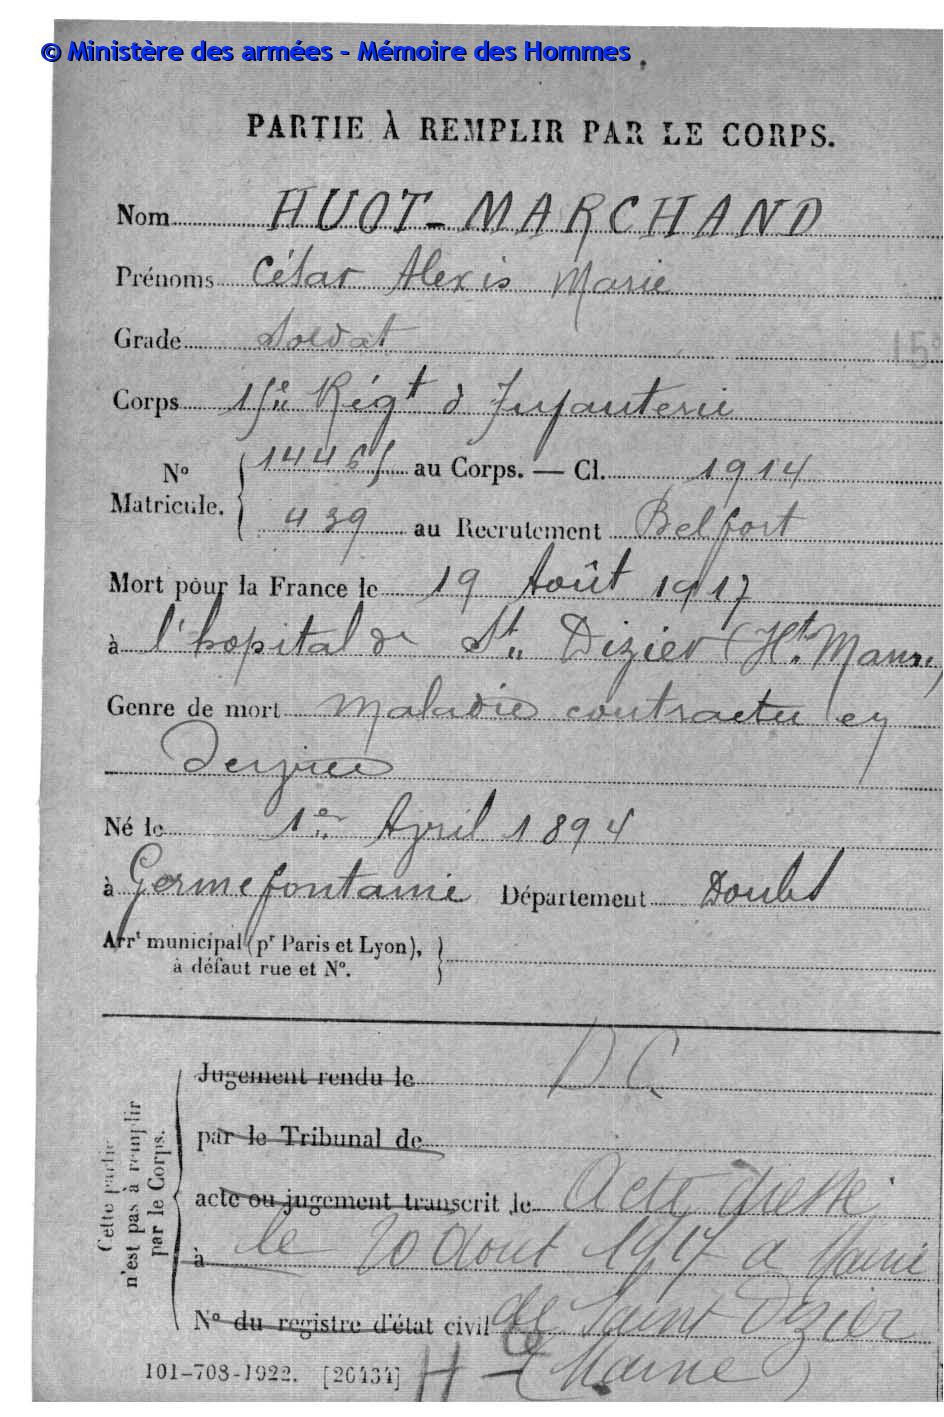 © Ministère des armées - Mémoire des Hommes
PARTIE À REMPLIR PAR LE CORPS.
Nom HUOT-MARCHAND
Prénoms César Alexis Marie
Grade Soldat
15e
Corps 15e Régt d'Infanterie
No Matricule. { 14465 au Corps. — Cl. 1914
439 au Recrutement Belfort
Mort pour la France le 19 Août 1917
à l'hopital de St. Dizier (Ht. Marne)
Genre de mort Maladie contractée en
Service
Né le 1er Avril 1894
à Germefontaine Département Doubs
Arrt municipal (pr Paris et Lyon), }
à défaut rue et No.
Cette partie n'est pas à remplir par le Corps.
Jugement rendu le D C
par le Tribunal de
acte ou jugement transcrit le Acte dressé
à le 20 Aout 1917 a Mairie
No du registre d'état civil de Saint Dizier
H - (Marne)
101-708-1922. [26434]